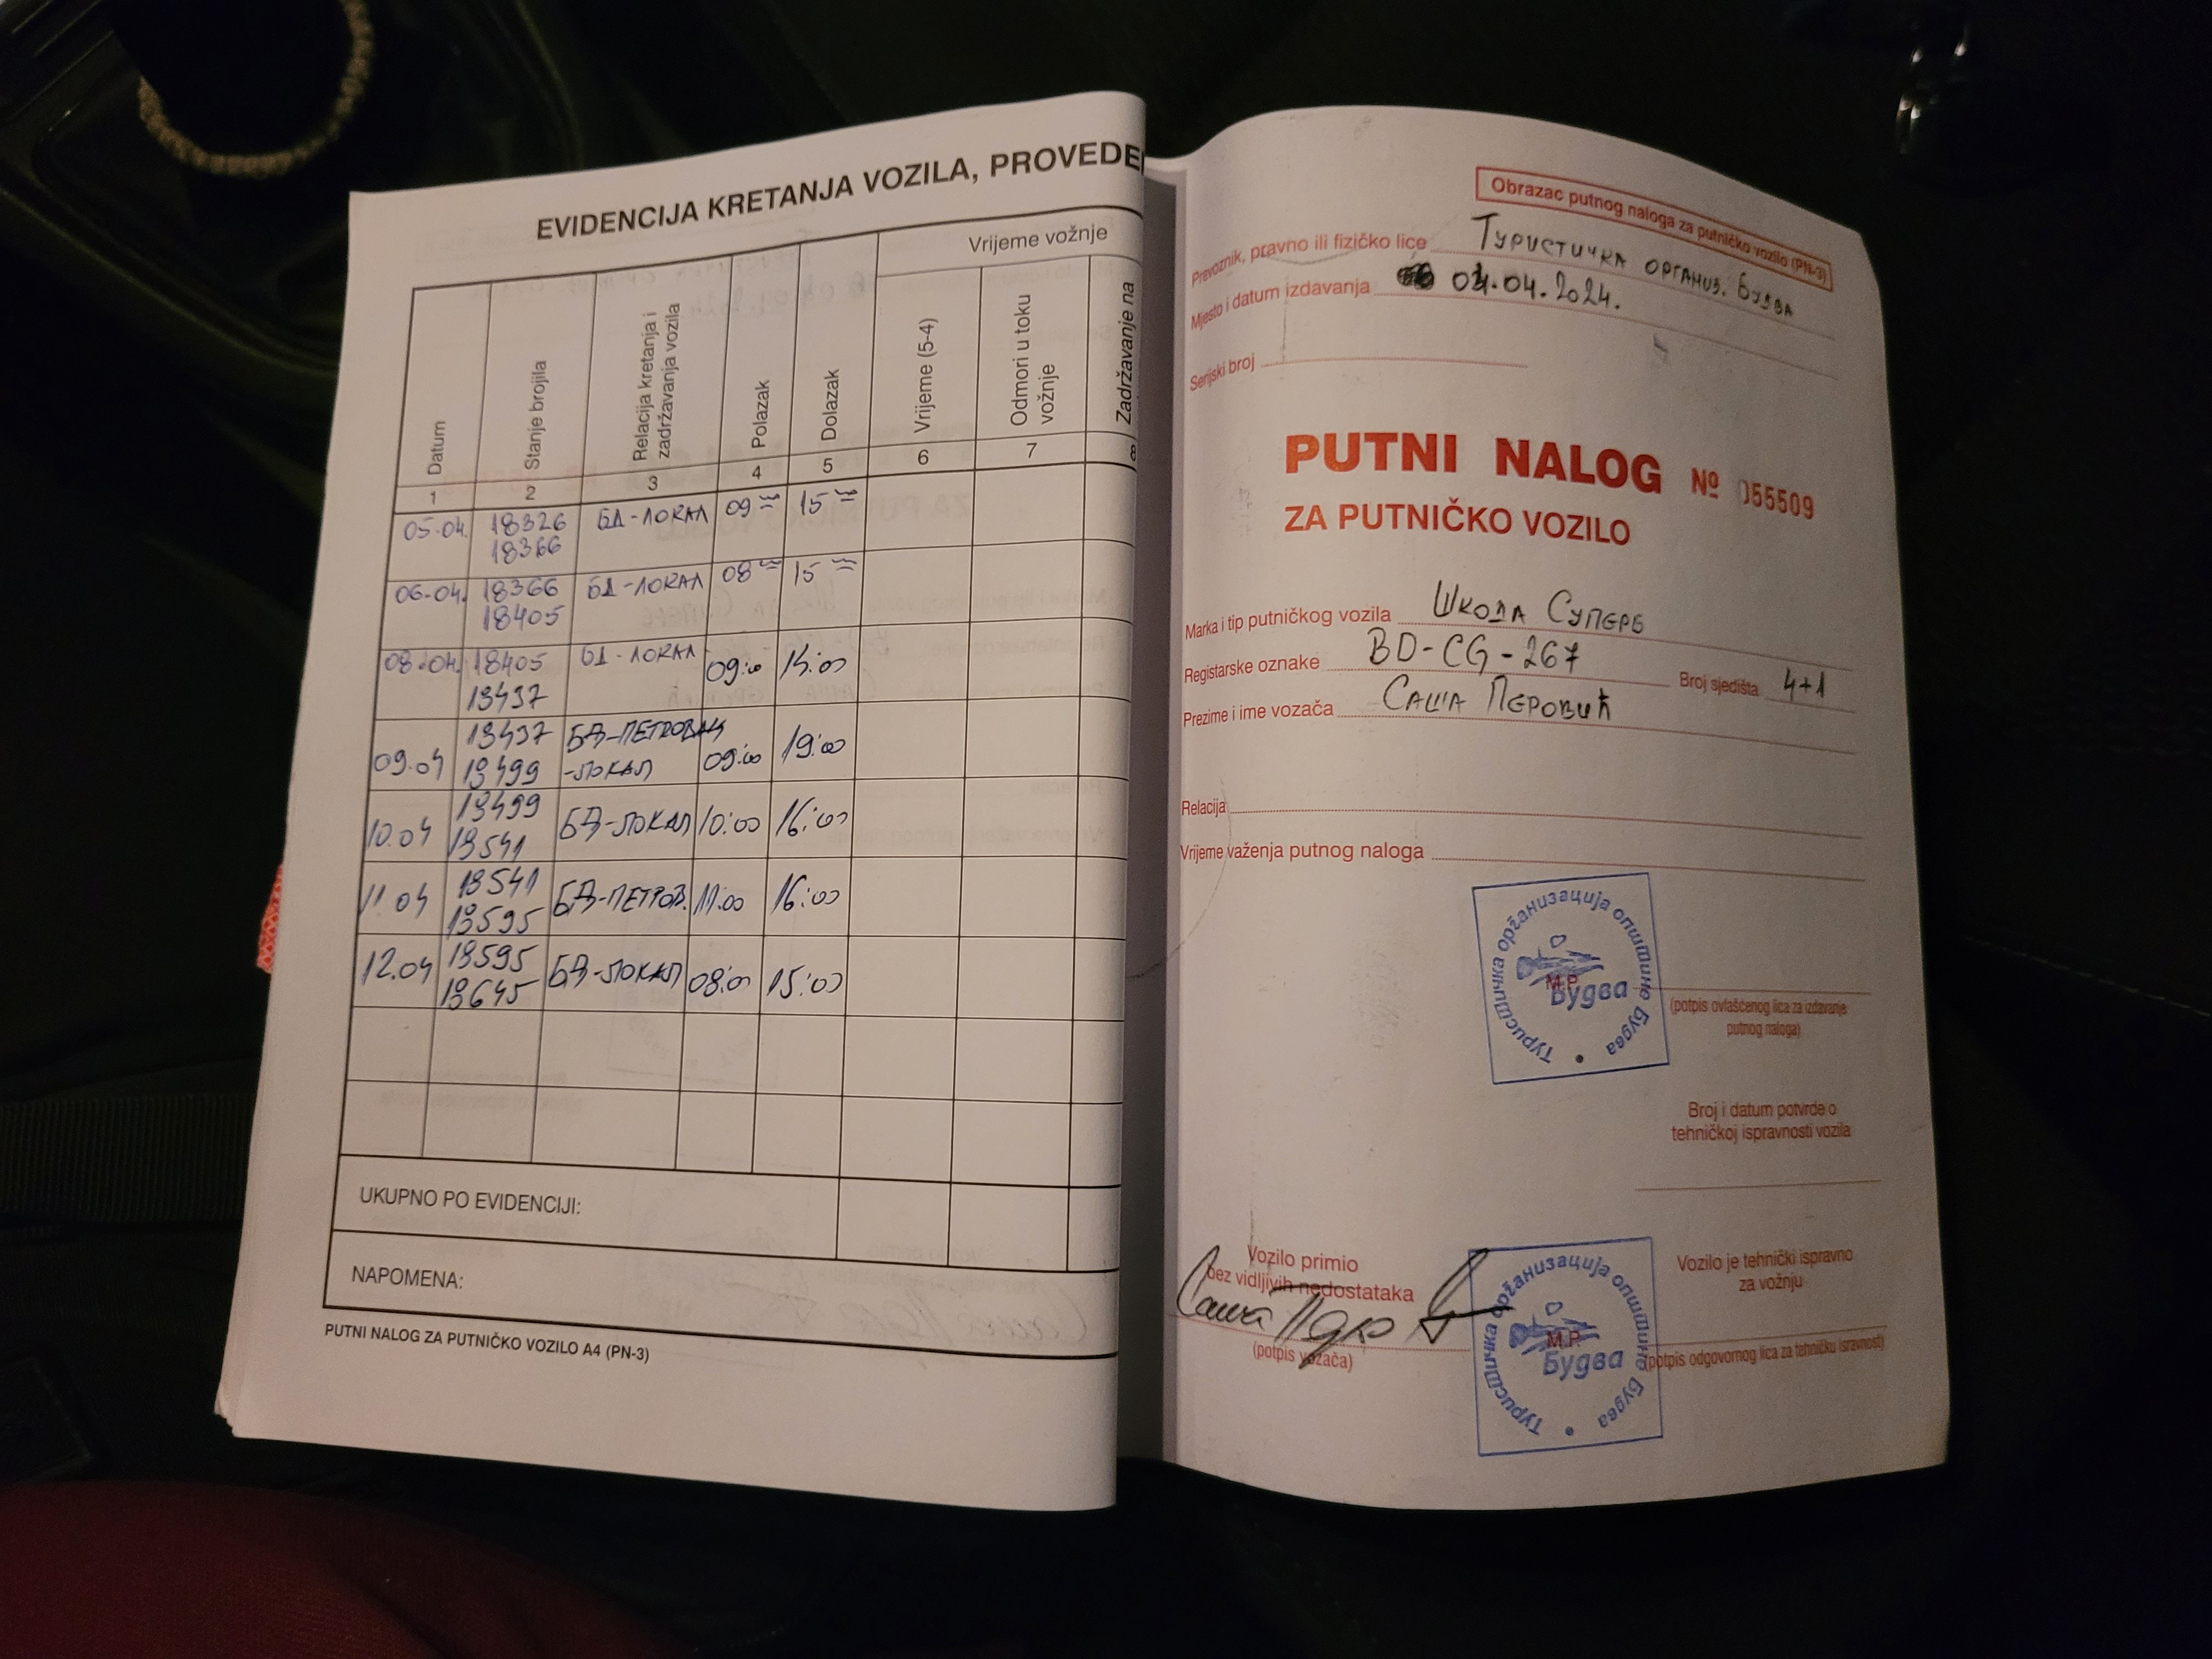 EVIDENCIJA KRETANJA VOZILA, PROVEDE
Datum
Stanje brojila
Relacija kretanja i
zadržavanja vozila
Polazak
Dolazak
Vrijeme vožnje
Vrijeme (5-4)
Odmori u toku
vožnje
Zadržavanje na
1 2 3 4 5 6 7 8
05.04. 18326 БД-ЛОКАЛ 09 00 15 00
18366
06.04. 18366 БД-ЛОКАЛ 08 00 15 00
18405
08.04. 18405 БД-ЛОКАЛ 09:00 15:00
18437
09.04 18437 БД-ПЕТРОВАЦ 09:00 19:00
18499 -ЛОКАЛ
10.04 18499 БД-ЛОКАЛ 10:00 16:00
18541
11.04 18541 БД-ПЕТРОВ. 11:00 16:00
18595
12.04 18595 БД-ЛОКАЛ 08:00 15:00
18645
UKUPNO PO EVIDENCIJI:
NAPOMENA:
PUTNI NALOG ZA PUTNIČKO VOZILO A4 (PN-3)
Obrazac putnog naloga za putničko vozilo (PN-3)
Prevoznik, pravno ili fizičko lice Туристичка организ. Будва
Mjesto i datum izdavanja 04.04.2024.
Serijski broj
PUTNI NALOG № 055509
ZA PUTNIČKO VOZILO
Marka i tip putničkog vozila Шкода Суперб
Registarske oznake BD-CG-267 Broj sjedišta 4+1
Prezime i ime vozača Саша Перовић
Relacija
Vrijeme važenja putnog naloga
Туристичка организација општине Будва
М.Р.
Будва
(potpis ovlašćenog lica za izdavanje
putnog naloga)
Broj i datum potvrde o
tehničkoj ispravnosti vozila
Vozilo primio
bez vidljivih nedostataka
Саша
(potpis vozača)
Туристичка организација општине Будва
М.Р.
Будва
Vozilo je tehnički ispravno
za vožnju
(potpis odgovornog lica za tehničku isravnost)